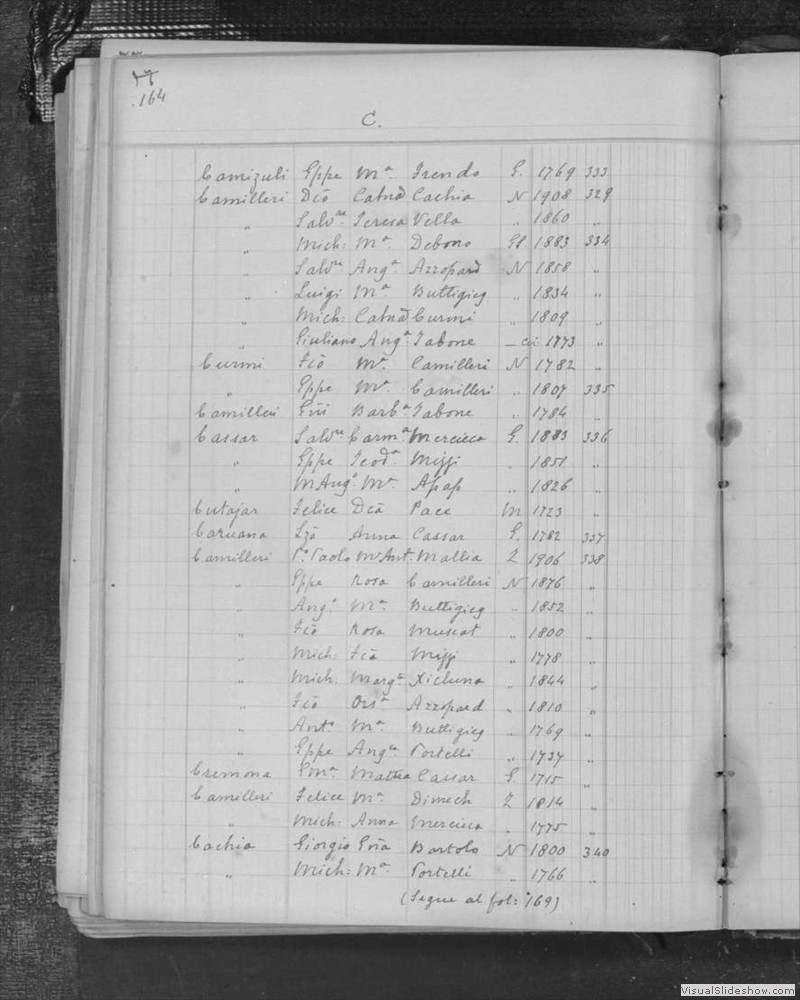 164
C.
Camizuli Gppe Mª Trendo G. 1769 333
Camilleri Dcō Catnā Cachia N 1908 329
" Salvre Teresa Vella " 1860 "
" Mich: Mª Debono Gd 1883 334
" Salvre Angª Azzopard N 1858 "
" Luigi Mª Buttigieg " 1834 "
" Mich: Catnā Curmi " 1809 "
" Giuliano Angª Tabone 1773 "
Curmi Fcō Mª Camilleri N 1782 "
" Gppe Mª Camilleri " 1807 335
Camilleri Gio Barbª Tabone " 1784 "
Cassar Salvre Carmª Mercieca G. 1883 336
" Gppe Teodª Mizzi " 1851 "
" MAngº Mª Apap " 1826 "
Cutajar Felice Dcā Pace M 1723 "
Caruana Lzō Anna Cassar G. 1782 337
Camilleri Pº Paolo Mª Ant. Mallia Z 1906 338
" Gppe Rosa Camilleri N 1876 "
" Angº Mª Buttigieg " 1852 "
" Fcō Rosa Muscat " 1800 "
" Mich: Fcā Mizzi " 1778 "
" Mich: Margª Xicluna " 1844 "
" Fcō Orsª Azzopard " 1810 "
" Antº Mª Buttigieg " 1769 "
" Gppe Angª Portelli " 1737 "
Cremona Mattea Cassar G. 1715 "
Camilleri Felice Mª Dimech Z 1814 "
" Mich: Anna Mercieca " 1775 "
Cachia Giorgio Gñā Bartolo N 1800 340
" Mich: Mª Portelli " 1766 "
(Segue al fol: 169)
VisualSlideshow.com